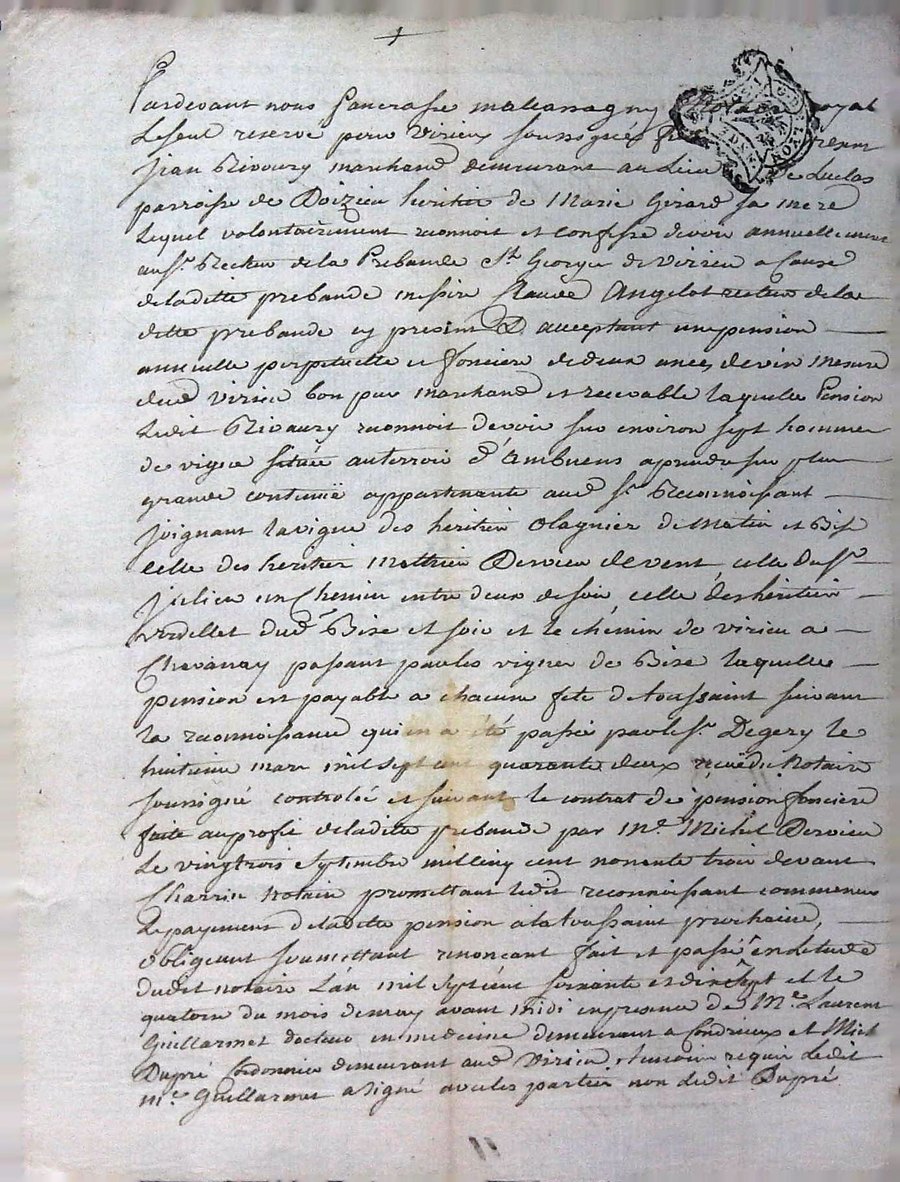 Pardevant nous Pancrasse malassagny Notaire royal
Le seul reservé pour Virieux soussigné fut present
Jean Rivoury marchand demeurant au Lieu de Luclas
parroisse de Doizieu heritier de Marie Girard sa mere
Lequel volontairement reconnoit et confesse devoir annuellement
au Sr. Recteur de la Prebande St. George de Virieu a Cause
de laditte prebande messire Claude Angelot recteur de la
ditte prebande cy present & acceptant une pension
annuelle perpetuelle et fonciere de deux anées de vin mesure
dud Virieu bon pur marchand et recevable laquelle Pension
Ledit Rivoury reconnoit devoir sur environ sept hommée
de vigne située au terroir d'Ambuens a prendre sur plus
grande continüe appartenante aud Sr. Reconnoissant
Joignant la vigne des heritiers Olagnier de Matin et Bise
celle des heritier Mathieu Dervieu de vent, celle du Sr
Julien un Chemin entre deux de soir, celle des heritiers
Verdellet dud Bise et soir et le chemin de virieu a
Chavanay passant par les vignes de Bise laquelle
pension est payable a chacune fete de toussaint suivant
la reconnoissance qui en a été passée par le Sr. Degery le
huitieme mars mil sept cent quarante deux recüe du Notaire
soussigné controlée et suivant le contrat de pension fonciere
faite au profit de laditte prebande par Me. Michel Dervieu
Le vingtrois Septembre mil cinq cent nonante trois devant
Charrin Notaire promettant ledit reconnoissant commencer
Le payement de laditte pension a la toussaint prochaine,
obligeant soumettant renonçant fait et passé en Letude
dudit notaire L'an mil sept cent soixante et dix sept et le
quatorze du mois de may avant midi en presence de Me. Laurent
Guillarmet docteur en medecine demeurant a Condrieux et Mich
Dupré Cordonnier demeurant aud Virieu temoins requis Ledit
Me. Guillarmet a signé avec les parties non Ledit Dupré